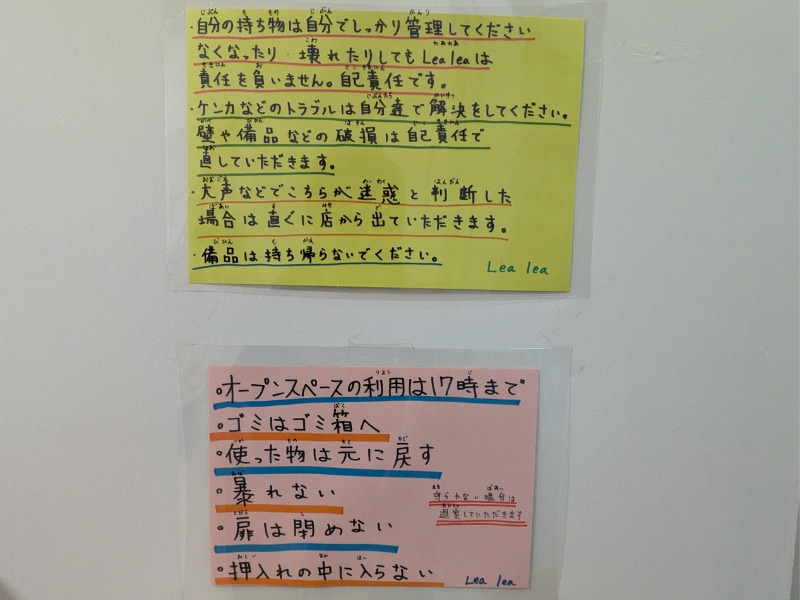 ・自分の持ち物は自分でしっかり管理してください
なくなったり・壊れたりしてもLea leaは
責任を負いません。自己責任です。
・ケンカなどのトラブルは自分達で解決をしてください。
壁や備品などの破損は自己責任で
直していただきます。
・大声などでこちらが迷惑と判断した
場合は直ぐに店から出ていただきます。
・備品は持ち帰らないでください。
Lea lea
・オープンスペースの利用は17時まで
・ゴミはゴミ箱へ
・使った物は元に戻す
・暴れない
・扉は閉めない
・押入れの中に入らない
守られない場合は
退室していただきます
Lea lea